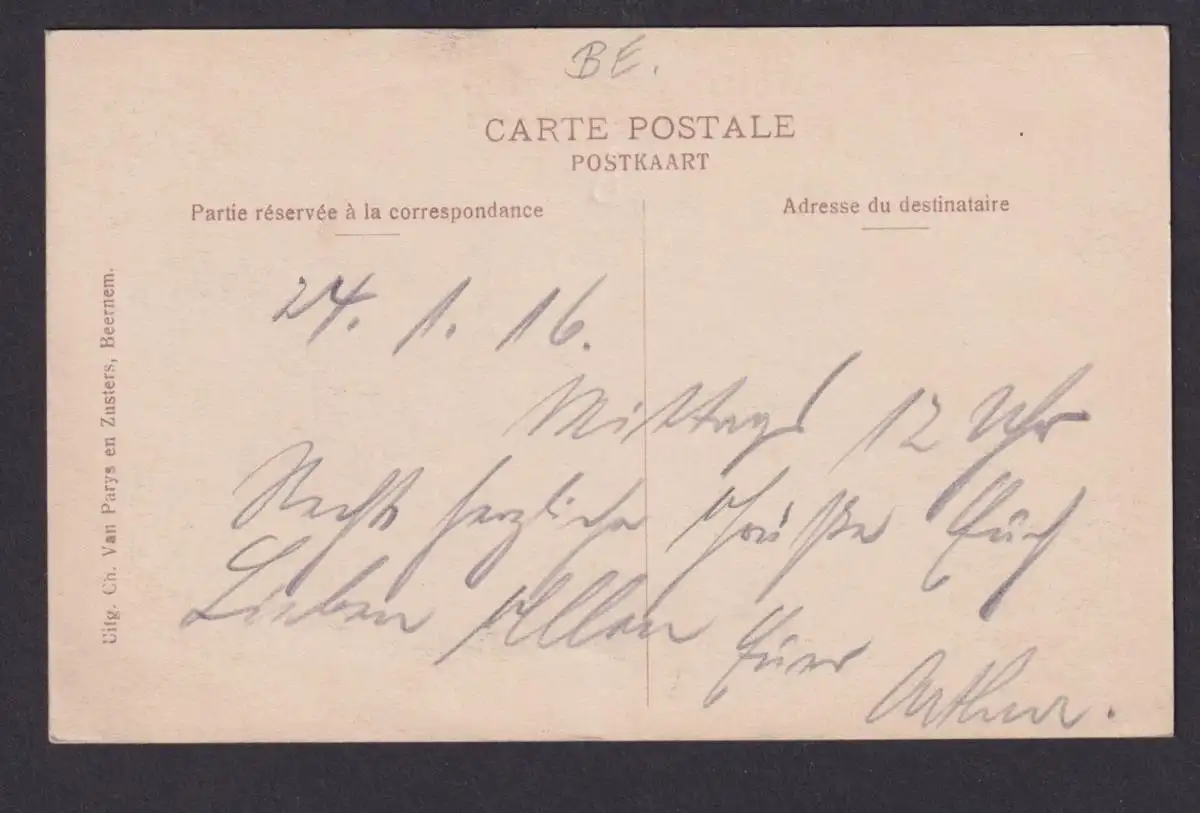 BE.
CARTE POSTALE
POSTKAART
Partie réservée à la correspondance
Adresse du destinataire
Uitg. Ch. Van Parys en Zusters, Beernem.
24. 1. 16.
Mittags 12 Uhr
Recht herzliche Grüße Euch
Lieben Allen Euer
Arthur.